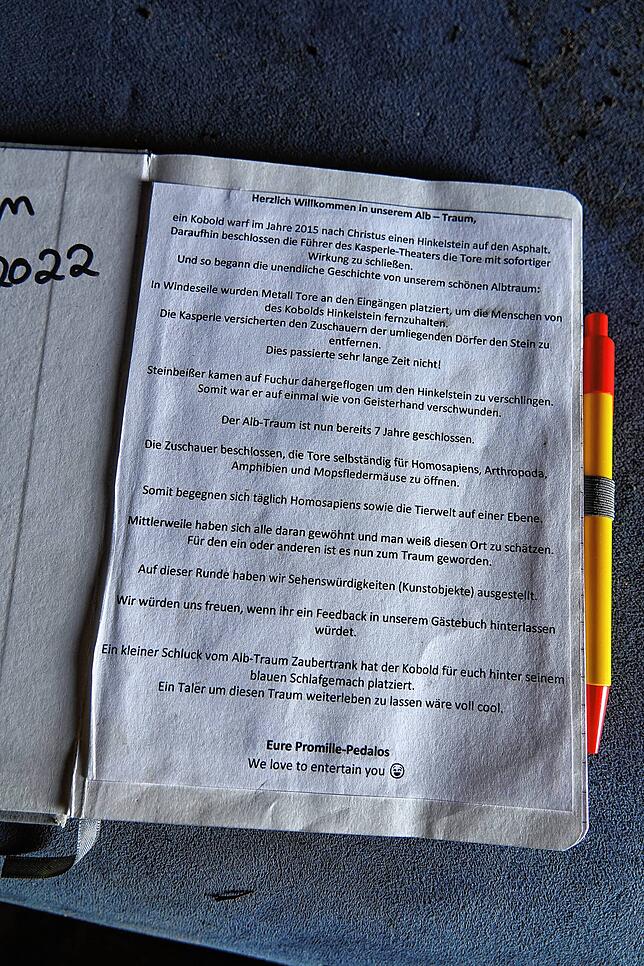 m
2022
Herzlich Willkommen in unserem Alb – Traum,
ein Kobold warf im Jahre 2015 nach Christus einen Hinkelstein auf den Asphalt.
Daraufhin beschlossen die Führer des Kasperle-Theaters die Tore mit sofortiger
Wirkung zu schließen.
Und so begann die unendliche Geschichte von unserem schönen Albtraum:
In Windeseile wurden Metall Tore an den Eingängen platziert, um die Menschen von
des Kobolds Hinkelstein fernzuhalten.
Die Kasperle versicherten den Zuschauern der umliegenden Dörfer den Stein zu
entfernen.
Dies passierte sehr lange Zeit nicht!
Steinbeißer kamen auf Fuchur dahergeflogen um den Hinkelstein zu verschlingen.
Somit war er auf einmal wie von Geisterhand verschwunden.
Der Alb-Traum ist nun bereits 7 Jahre geschlossen.
Die Zuschauer beschlossen, die Tore selbständig für Homosapiens, Arthropoda,
Amphibien und Mopsfledermäuse zu öffnen.
Somit begegnen sich täglich Homosapiens sowie die Tierwelt auf einer Ebene.
Mittlerweile haben sich alle daran gewöhnt und man weiß diesen Ort zu schätzen.
Für den ein oder anderen ist es nun zum Traum geworden.
Auf dieser Runde haben wir Sehenswürdigkeiten (Kunstobjekte) ausgestellt.
Wir würden uns freuen, wenn ihr ein Feedback in unserem Gästebuch hinterlassen
würdet.
Ein kleiner Schluck vom Alb-Traum Zaubertrank hat der Kobold für euch hinter seinem
blauen Schlafgemach platziert.
Ein Taler um diesen Traum weiterleben zu lassen wäre voll cool.
Eure Promille-Pedalos
We love to entertain you 😄